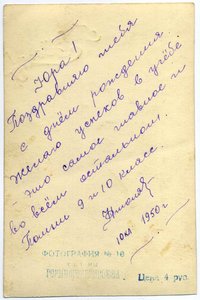 Юра!
Поздравляю тебя
с днём рождения
желаю успехов в учёбе
- это самое главное и
во всём остальном.
Помни 9 и 10 класс.
1950 г.
ФОТОГРАФИЯ № 10
Цена 4 руб.